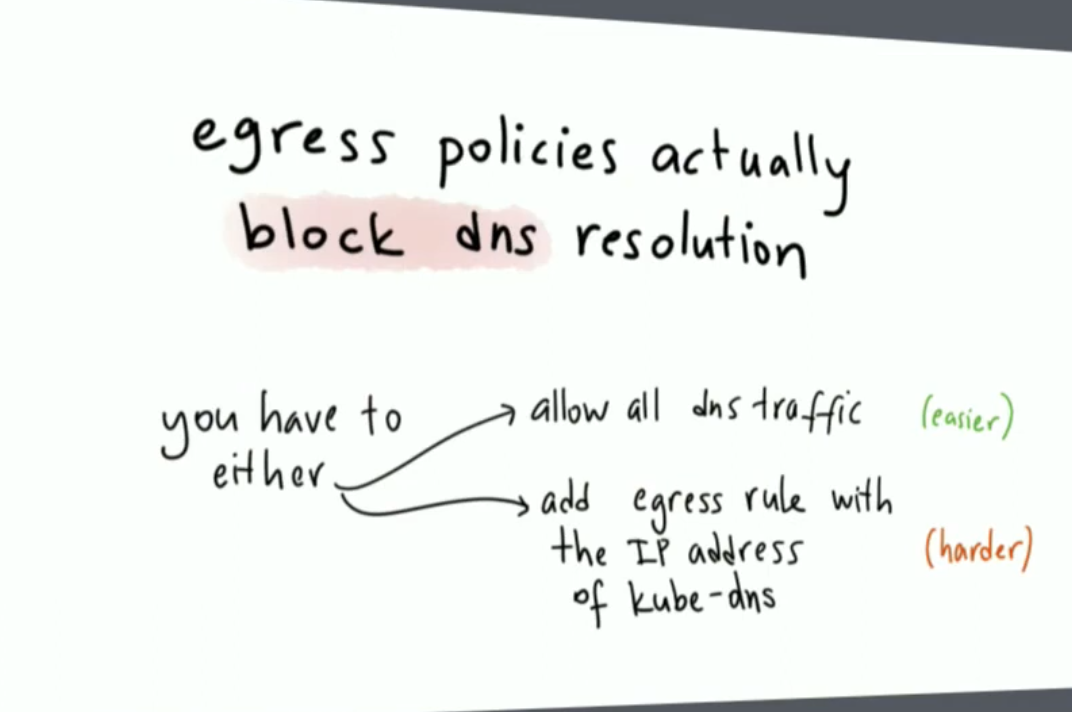 egress policies actually
block dns resolution
you have to
either
allow all dns traffic (easier)
add egress rule with
the IP address
of kube-dns
(harder)